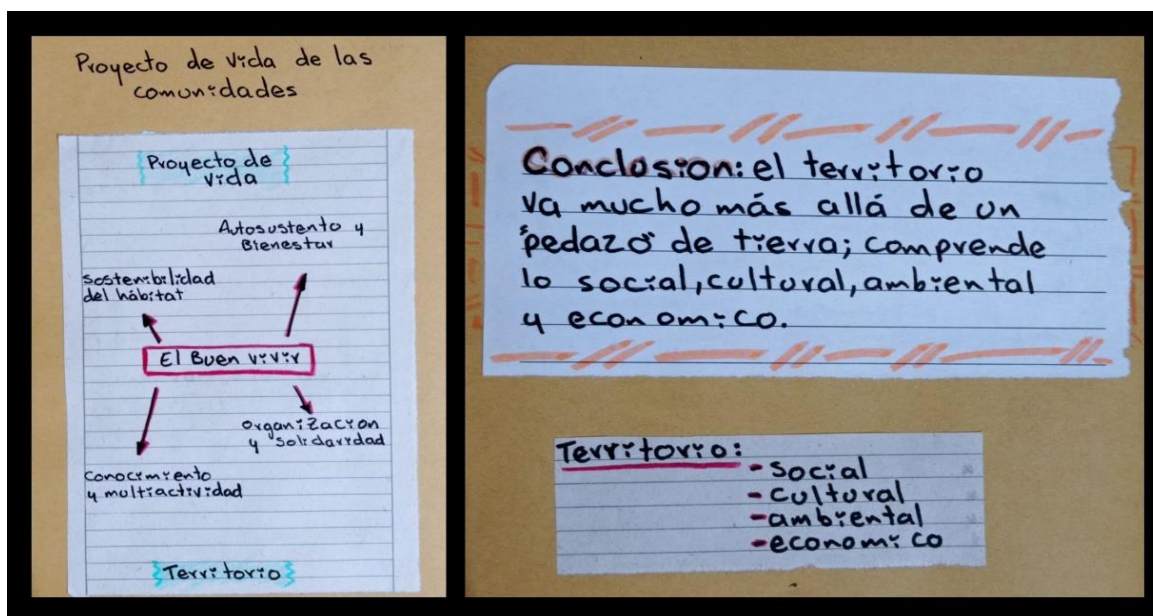 Proyecto de vida de las
comunidades
Proyecto de
vida
Autosustento y
Bienestar
Sostenibilidad
del hábitat
El Buen vivir
organización
y solidaridad
Conocimiento
y multiactividad
Territorio
Conclusion: el territorio
va mucho más allá de un
"pedazo" de tierra; comprende
lo social, cultural, ambiental
y economico.
Territorio:
- social
- cultural
- ambiental
- economico